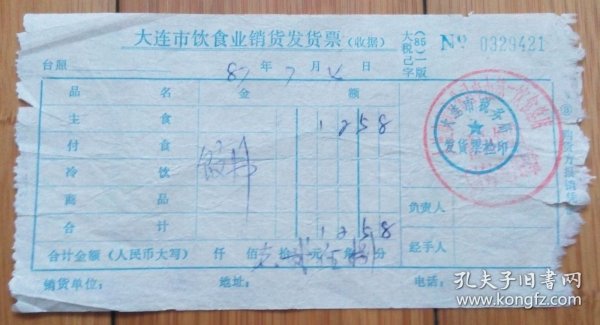 大连市饮食业销货发货票(收据)
(86)一版
大税己字
№ 0329421
台照 87 年 7 月 日
品 名 金 额
主 食 1 2 5 8
付 食
冷 饮
商 品
合 计 1 2 5 8
合计金额(人民币大写) 仟 佰 拾 元 角 分
负责人
经手人
销货单位: 地址: 电话:
大连市税务局
发货票检印
孔夫子旧书网
www.kongfz.com